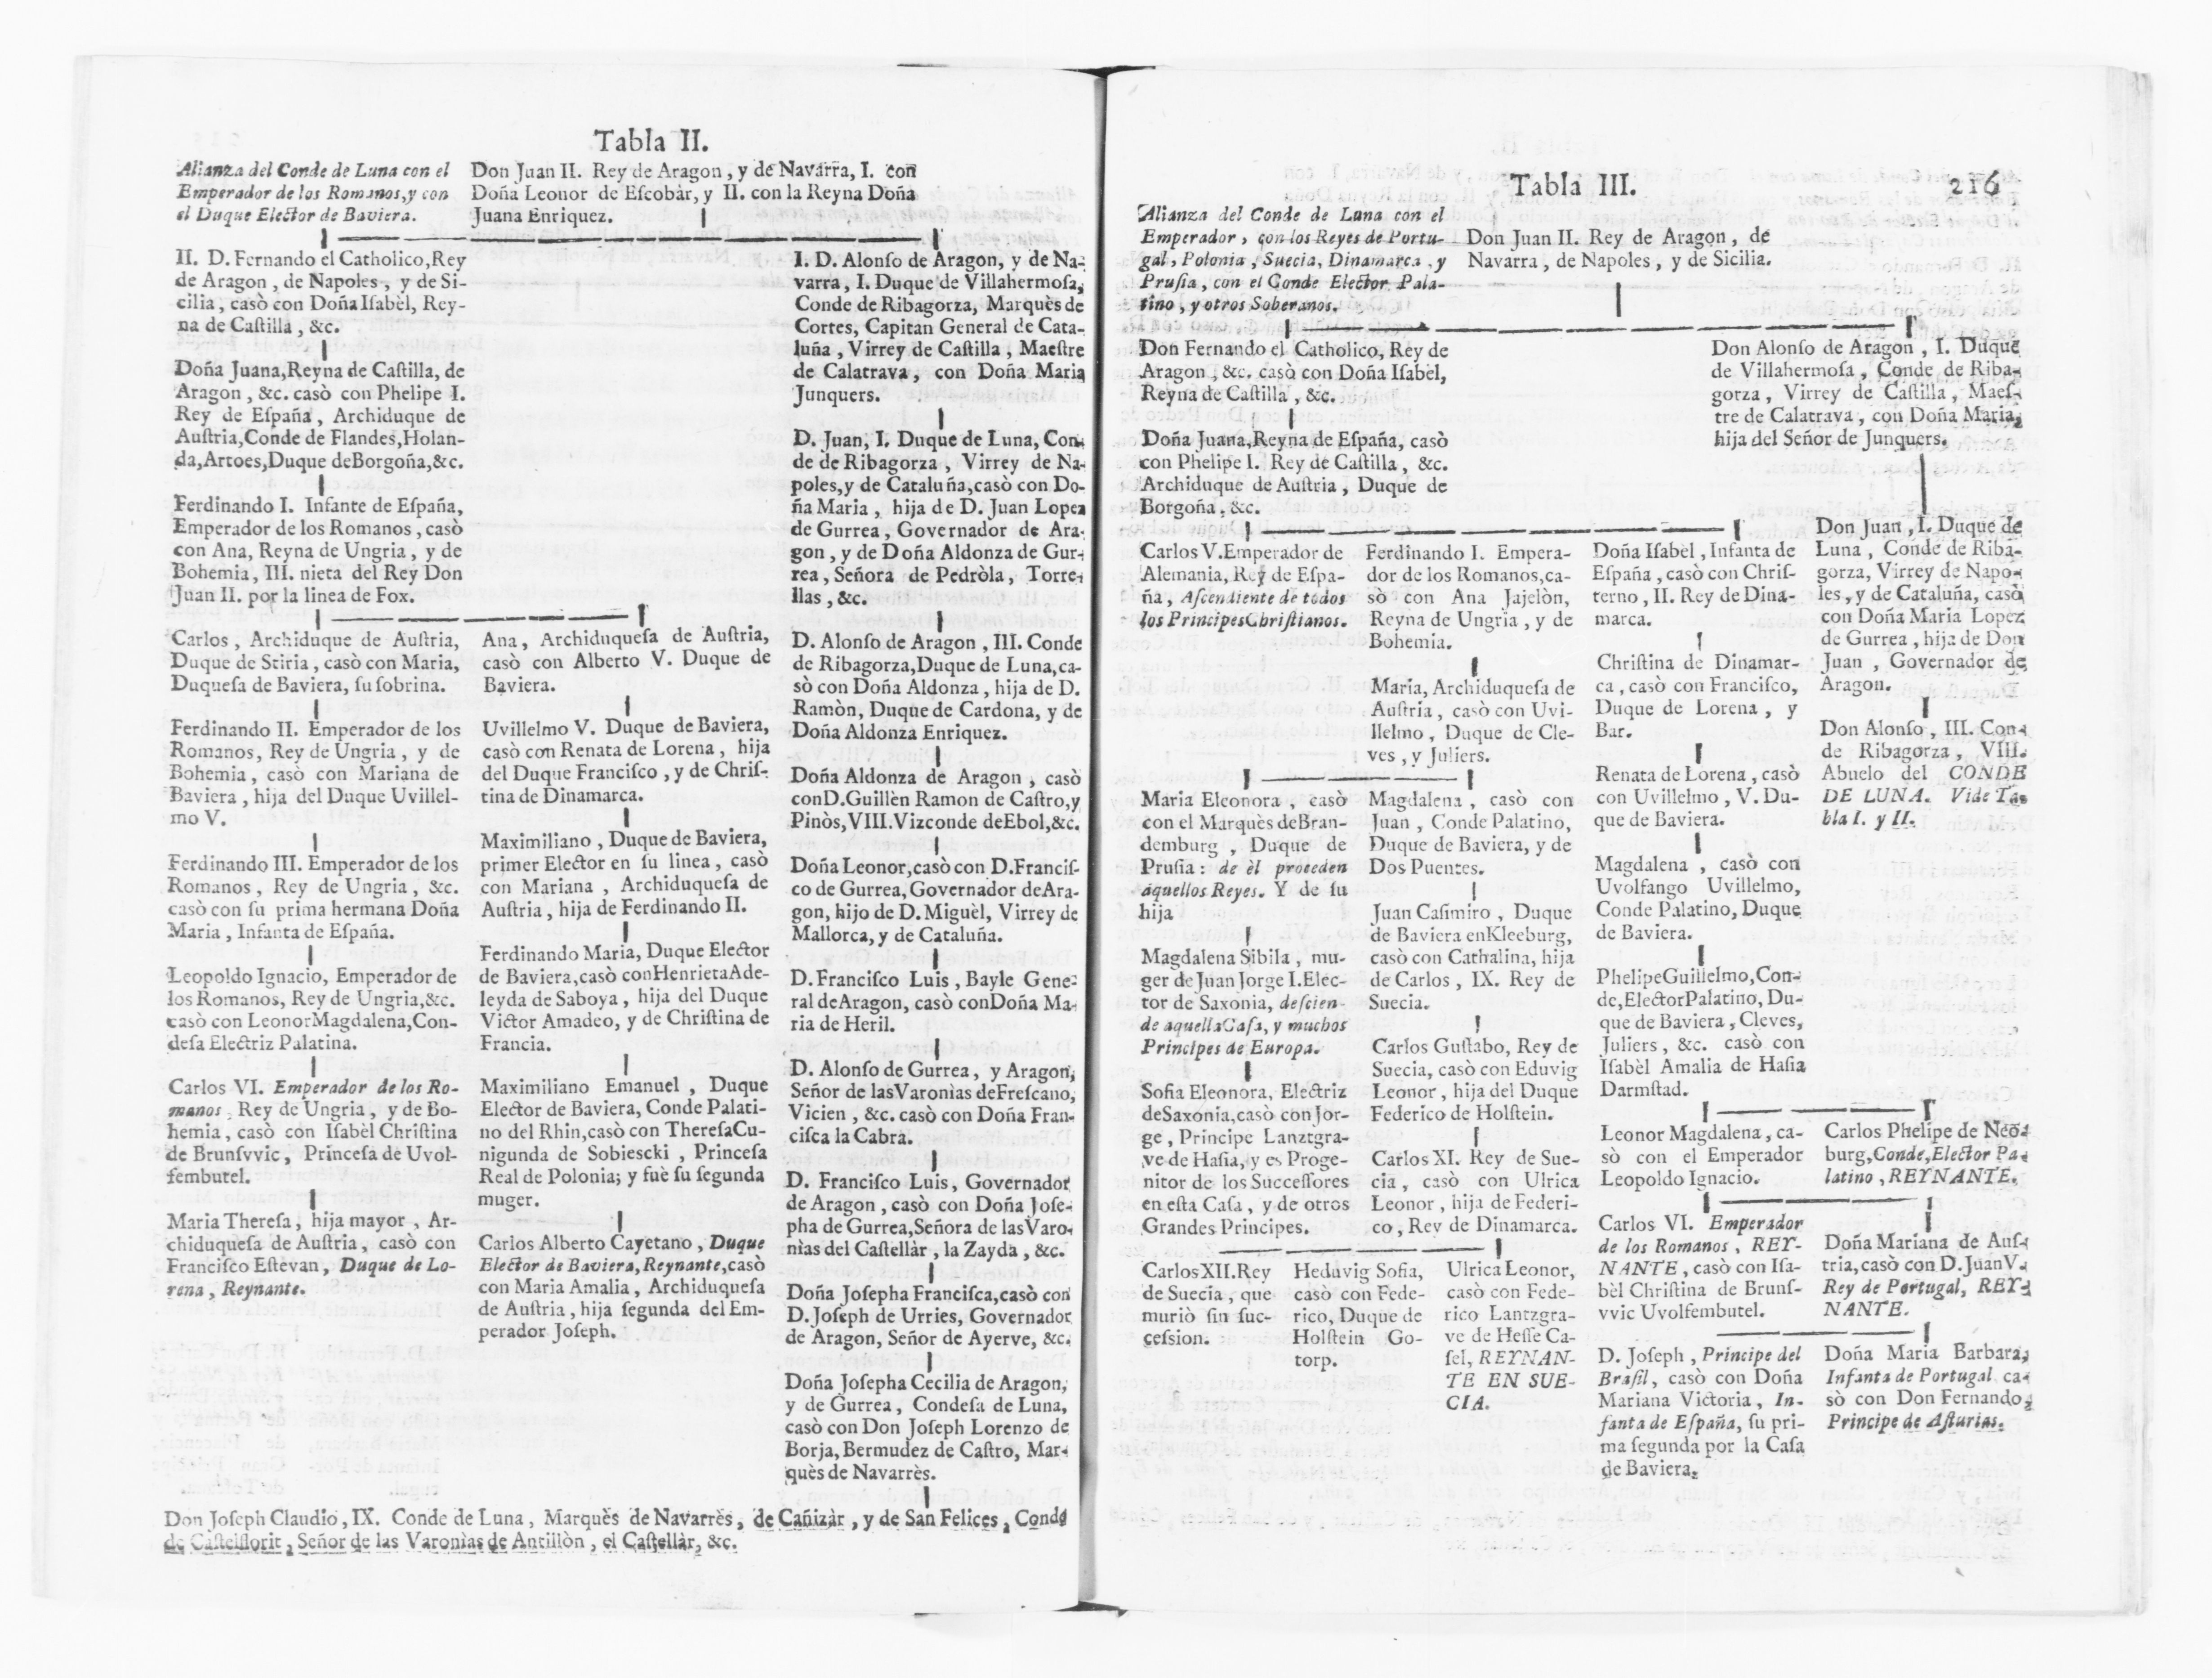 Tabla II.
Alianza del Conde de Luna con el
Emperador de los Romanos, y con
el Duque Elector de Baviera.
Don Juan II. Rey de Aragon, y de Navarra, I. con
Doña Leonor de Eſcobàr, y II. con la Reyna Doña
Juana Enriquez.
II. D. Fernando el Catholico, Rey
de Aragon, de Napoles, y de Si-
cilia, casò con Doña Iſabèl, Rey-
na de Caſtilla, &c.
Doña Juana, Reyna de Caſtilla, de
Aragon, &c. casò con Phelipe I.
Rey de Eſpaña, Archiduque de
Auſtria, Conde de Flandes, Holan-
da, Artoes, Duque de Borgoña, &c.
Ferdinando I. Infante de Eſpaña,
Emperador de los Romanos, casò
con Ana, Reyna de Ungria, y de
Bohemia, III. nieta del Rey Don
Juan II. por la linea de Fox.
Carlos, Archiduque de Auſtria,
Duque de Stiria, casò con Maria,
Duqueſa de Baviera, ſu ſobrina.
Ferdinando II. Emperador de los
Romanos, Rey de Ungria, y de
Bohemia, casò con Mariana de
Baviera, hija del Duque Uvillel-
mo V.
Ferdinando III. Emperador de los
Romanos, Rey de Ungria, &c.
casò con ſu prima hermana Doña
Maria, Infanta de Eſpaña.
Leopoldo Ignacio, Emperador de
los Romanos, Rey de Ungria, &c.
casò con Leonor Magdalena, Con-
deſa Electriz Palatina.
Carlos VI. Emperador de los Ro-
manos, Rey de Ungria, y de Bo-
hemia, casò con Iſabèl Chriſtina
de Brunſvvic, Princeſa de Uvol-
fembutel.
Maria Thereſa, hija mayor, Ar-
chiduqueſa de Auſtria, casò con
Franciſco Eſtevan, Duque de Lo-
rena, Reynante.
Ana, Archiduqueſa de Auſtria,
casò con Alberto V. Duque de
Baviera.
Uvillelmo V. Duque de Baviera,
casò con Renata de Lorena, hija
del Duque Franciſco, y de Chriſ-
tina de Dinamarca.
Maximiliano, Duque de Baviera,
primer Elector en ſu linea, casò
con Mariana, Archiduqueſa de
Auſtria, hija de Ferdinando II.
Ferdinando Maria, Duque Elector
de Baviera, casò con Henrieta Ade-
leyda de Saboya, hija del Duque
Victor Amadeo, y de Chriſtina de
Francia.
Maximiliano Emanuel, Duque
Elector de Baviera, Conde Palati-
no del Rhin, casò con Thereſa Cu-
nigunda de Sobieſcki, Princeſa
Real de Polonia; y fuè ſu ſegunda
muger.
Carlos Alberto Cayetano, Duque
Elector de Baviera, Reynante, casò
con Maria Amalia, Archiduqueſa
de Auſtria, hija ſegunda del Em-
perador Joſeph.
I. D. Alonſo de Aragon, y de Na-
varra, I. Duque de Villahermoſa,
Conde de Ribagorza, Marquès de
Cortes, Capitan General de Cata-
luña, Virrey de Caſtilla, Maeſtre
de Calatrava, con Doña Maria
Junquers.
D. Juan, I. Duque de Luna, Con-
de de Ribagorza, Virrey de Na-
poles, y de Cataluña, casò con Do-
ña Maria, hija de D. Juan Lopez
de Gurrea, Governador de Ara-
gon, y de Doña Aldonza de Gur-
rea, Señora de Pedròla, Torre-
llas, &c.
D. Alonſo de Aragon, III. Conde
de Ribagorza, Duque de Luna, ca-
sò con Doña Aldonza, hija de D.
Ramòn, Duque de Cardona, y de
Doña Aldonza Enriquez.
Doña Aldonza de Aragon, casò
con D. Guillèn Ramon de Caſtro, y
Pinòs, VIII. Vizconde de Ebol, &c.
Doña Leonor, casò con D. Franciſ-
co de Gurrea, Governador de Ara-
gon, hijo de D. Miguèl, Virrey de
Mallorca, y de Cataluña.
D. Franciſco Luis, Bayle Gene-
ral de Aragon, casò con Doña Ma-
ria de Heril.
D. Alonſo de Gurrea, y Aragon,
Señor de las Varonìas de Freſcano,
Vicien, &c. casò con Doña Fran-
ciſca la Cabra.
D. Franciſco Luis, Governador
de Aragon, casò con Doña Joſe-
pha de Gurrea, Señora de las Varo-
nìas del Caſtellàr, la Zayda, &c.
Doña Joſepha Franciſca, casò con
D. Joſeph de Urries, Governador
de Aragon, Señor de Ayerve, &c.
Doña Joſepha Cecilia de Aragon,
y de Gurrea, Condeſa de Luna,
casò con Don Joſeph Lorenzo de
Borja, Bermudez de Caſtro, Mar-
quès de Navarrès.
Don Joſeph Claudio, IX. Conde de Luna, Marquès de Navarrès, de Cañizàr, y de San Felices, Conde
de Caſtelflorit, Señor de las Varonìas de Antillòn, el Caſtellàr, &c.
Tabla III.
216
Alianza del Conde de Luna con el
Emperador, con los Reyes de Portu-
gal, Polonia, Suecia, Dinamarca, y
Pruſia, con el Conde Elector Pala-
tino, y otros Soberanos.
Don Juan II. Rey de Aragon, de
Navarra, de Napoles, y de Sicilia.
Don Fernando el Catholico, Rey de
Aragon, &c. casò con Doña Iſabèl,
Reyna de Caſtilla, &c.
Doña Juana, Reyna de Eſpaña, casò
con Phelipe I. Rey de Caſtilla, &c.
Archiduque de Auſtria, Duque de
Borgoña, &c.
Don Alonſo de Aragon, I. Duque
de Villahermoſa, Conde de Riba-
gorza, Virrey de Caſtilla, Maeſ-
tre de Calatrava, con Doña Maria,
hija del Señor de Junquers.
Carlos V. Emperador de
Alemania, Rey de Eſpa-
ña, Aſcendiente de todos
los Principes Chriſtianos.
Ferdinando I. Empera-
dor de los Romanos, ca-
sò con Ana Jajelòn,
Reyna de Ungria, y de
Bohemia.
Maria, Archiduqueſa de
Auſtria, casò con Uvi-
llelmo, Duque de Cle-
ves, y Juliers.
Maria Eleonora, casò
con el Marquès de Bran-
demburg, Duque de
Pruſia: de èl proceden
aquellos Reyes. Y de ſu
hija
Magdalena Sibila, mu-
ger de Juan Jorge I. Elec-
tor de Saxonia, deſcien-
de aquella Caſa, y muchos
Principes de Europa.
Sofia Eleonora, Electriz
de Saxonia, casò con Jor-
ge, Principe Lanztgra-
ve de Haſia, y es Proge-
nitor de los Succeſſores
en eſta Caſa, y de otros
Grandes Principes.
Magdalena, casò con
Juan, Conde Palatino,
Duque de Baviera, y de
Dos Puentes.
Juan Caſimiro, Duque
de Baviera en Kleeburg,
casò con Cathalina, hija
de Carlos, IX. Rey de
Suecia.
Carlos Guſtabo, Rey de
Suecia, casò con Eduvig
Leonor, hija del Duque
Federico de Holſtein.
Carlos XI. Rey de Sue-
cia, casò con Ulrica
Leonor, hija de Federi-
co, Rey de Dinamarca.
Carlos XII. Rey
de Suecia, que
muriò ſin ſuc-
ceſsion.
Heduvig Sofia,
casò con Fede-
rico, Duque de
Holſtein Go-
torp.
Ulrica Leonor,
casò con Fede-
rico Lantzgra-
ve de Heſſe Ca-
ſel, REYNAN-
TE EN SUE-
CIA.
Doña Iſabèl, Infanta de
Eſpaña, casò con Chriſ-
terno, II. Rey de Dina-
marca.
Chriſtina de Dinamar-
ca, casò con Franciſco,
Duque de Lorena, y
Bar.
Renata de Lorena, casò
con Uvillelmo, V. Du-
que de Baviera.
Magdalena, casò con
Uvolfango Uvillelmo,
Conde Palatino, Duque
de Baviera.
Phelipe Guillelmo, Con-
de, Elector Palatino, Du-
que de Baviera, Cleves,
Juliers, &c. casò con
Iſabèl Amalia de Haſia
Darmſtad.
Leonor Magdalena, ca-
sò con el Emperador
Leopoldo Ignacio.
Carlos VI. Emperador
de los Romanos, REY-
NANTE, casò con Iſa-
bèl Chriſtina de Brunſ-
vvic Uvolfembutel.
D. Joſeph, Principe del
Braſil, casò con Doña
Mariana Victoria, In-
fanta de Eſpaña, ſu pri-
ma ſegunda por la Caſa
de Baviera.
Don Juan, I. Duque de
Luna, Conde de Riba-
gorza, Virrey de Napo-
les, y de Cataluña, casò
con Doña Maria Lopez
de Gurrea, hija de Don
Juan, Governador de
Aragon.
Don Alonſo, III. Con-
de Ribagorza, VIII.
Abuelo del CONDE
DE LUNA. Vide Ta-
bla I. y II.
Carlos Phelipe de Neo-
burg, Conde, Elector Pa-
latino, REYNANTE.
Doña Mariana de Auſ-
tria, casò con D. Juan V.
Rey de Portugal, REY-
NANTE.
Doña Maria Barbara,
Infanta de Portugal ca-
sò con Don Fernando,
Principe de Aſturias.